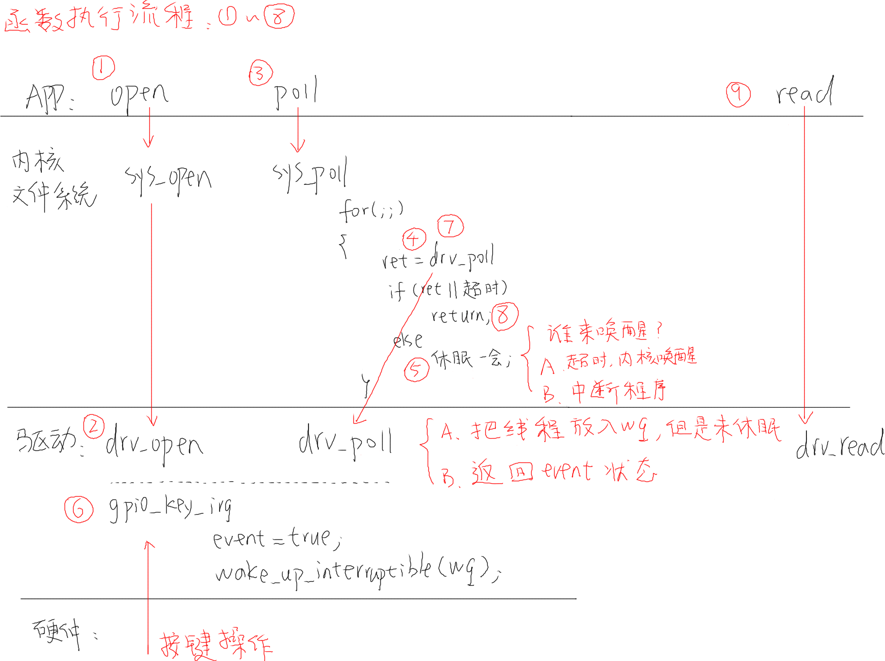 函数执行流程:①~⑧
① ③ ⑨
APP: open poll read
内核
文件系统
sys_open sys_poll
for(;;)
{
④ ⑦
ret = drv_poll
if (ret || 超时)
return; ⑧
else
⑤ 休眠一会;
}
谁来唤醒?
A. 超时,内核唤醒
B. 中断程序
驱动: ② drv_open drv_poll drv_read
A. 把线程放入wq,但是未休眠
B. 返回event状态
⑥ gpio_key_irq
event = true;
wake_up_interruptible(wq);
硬件:
按键操作